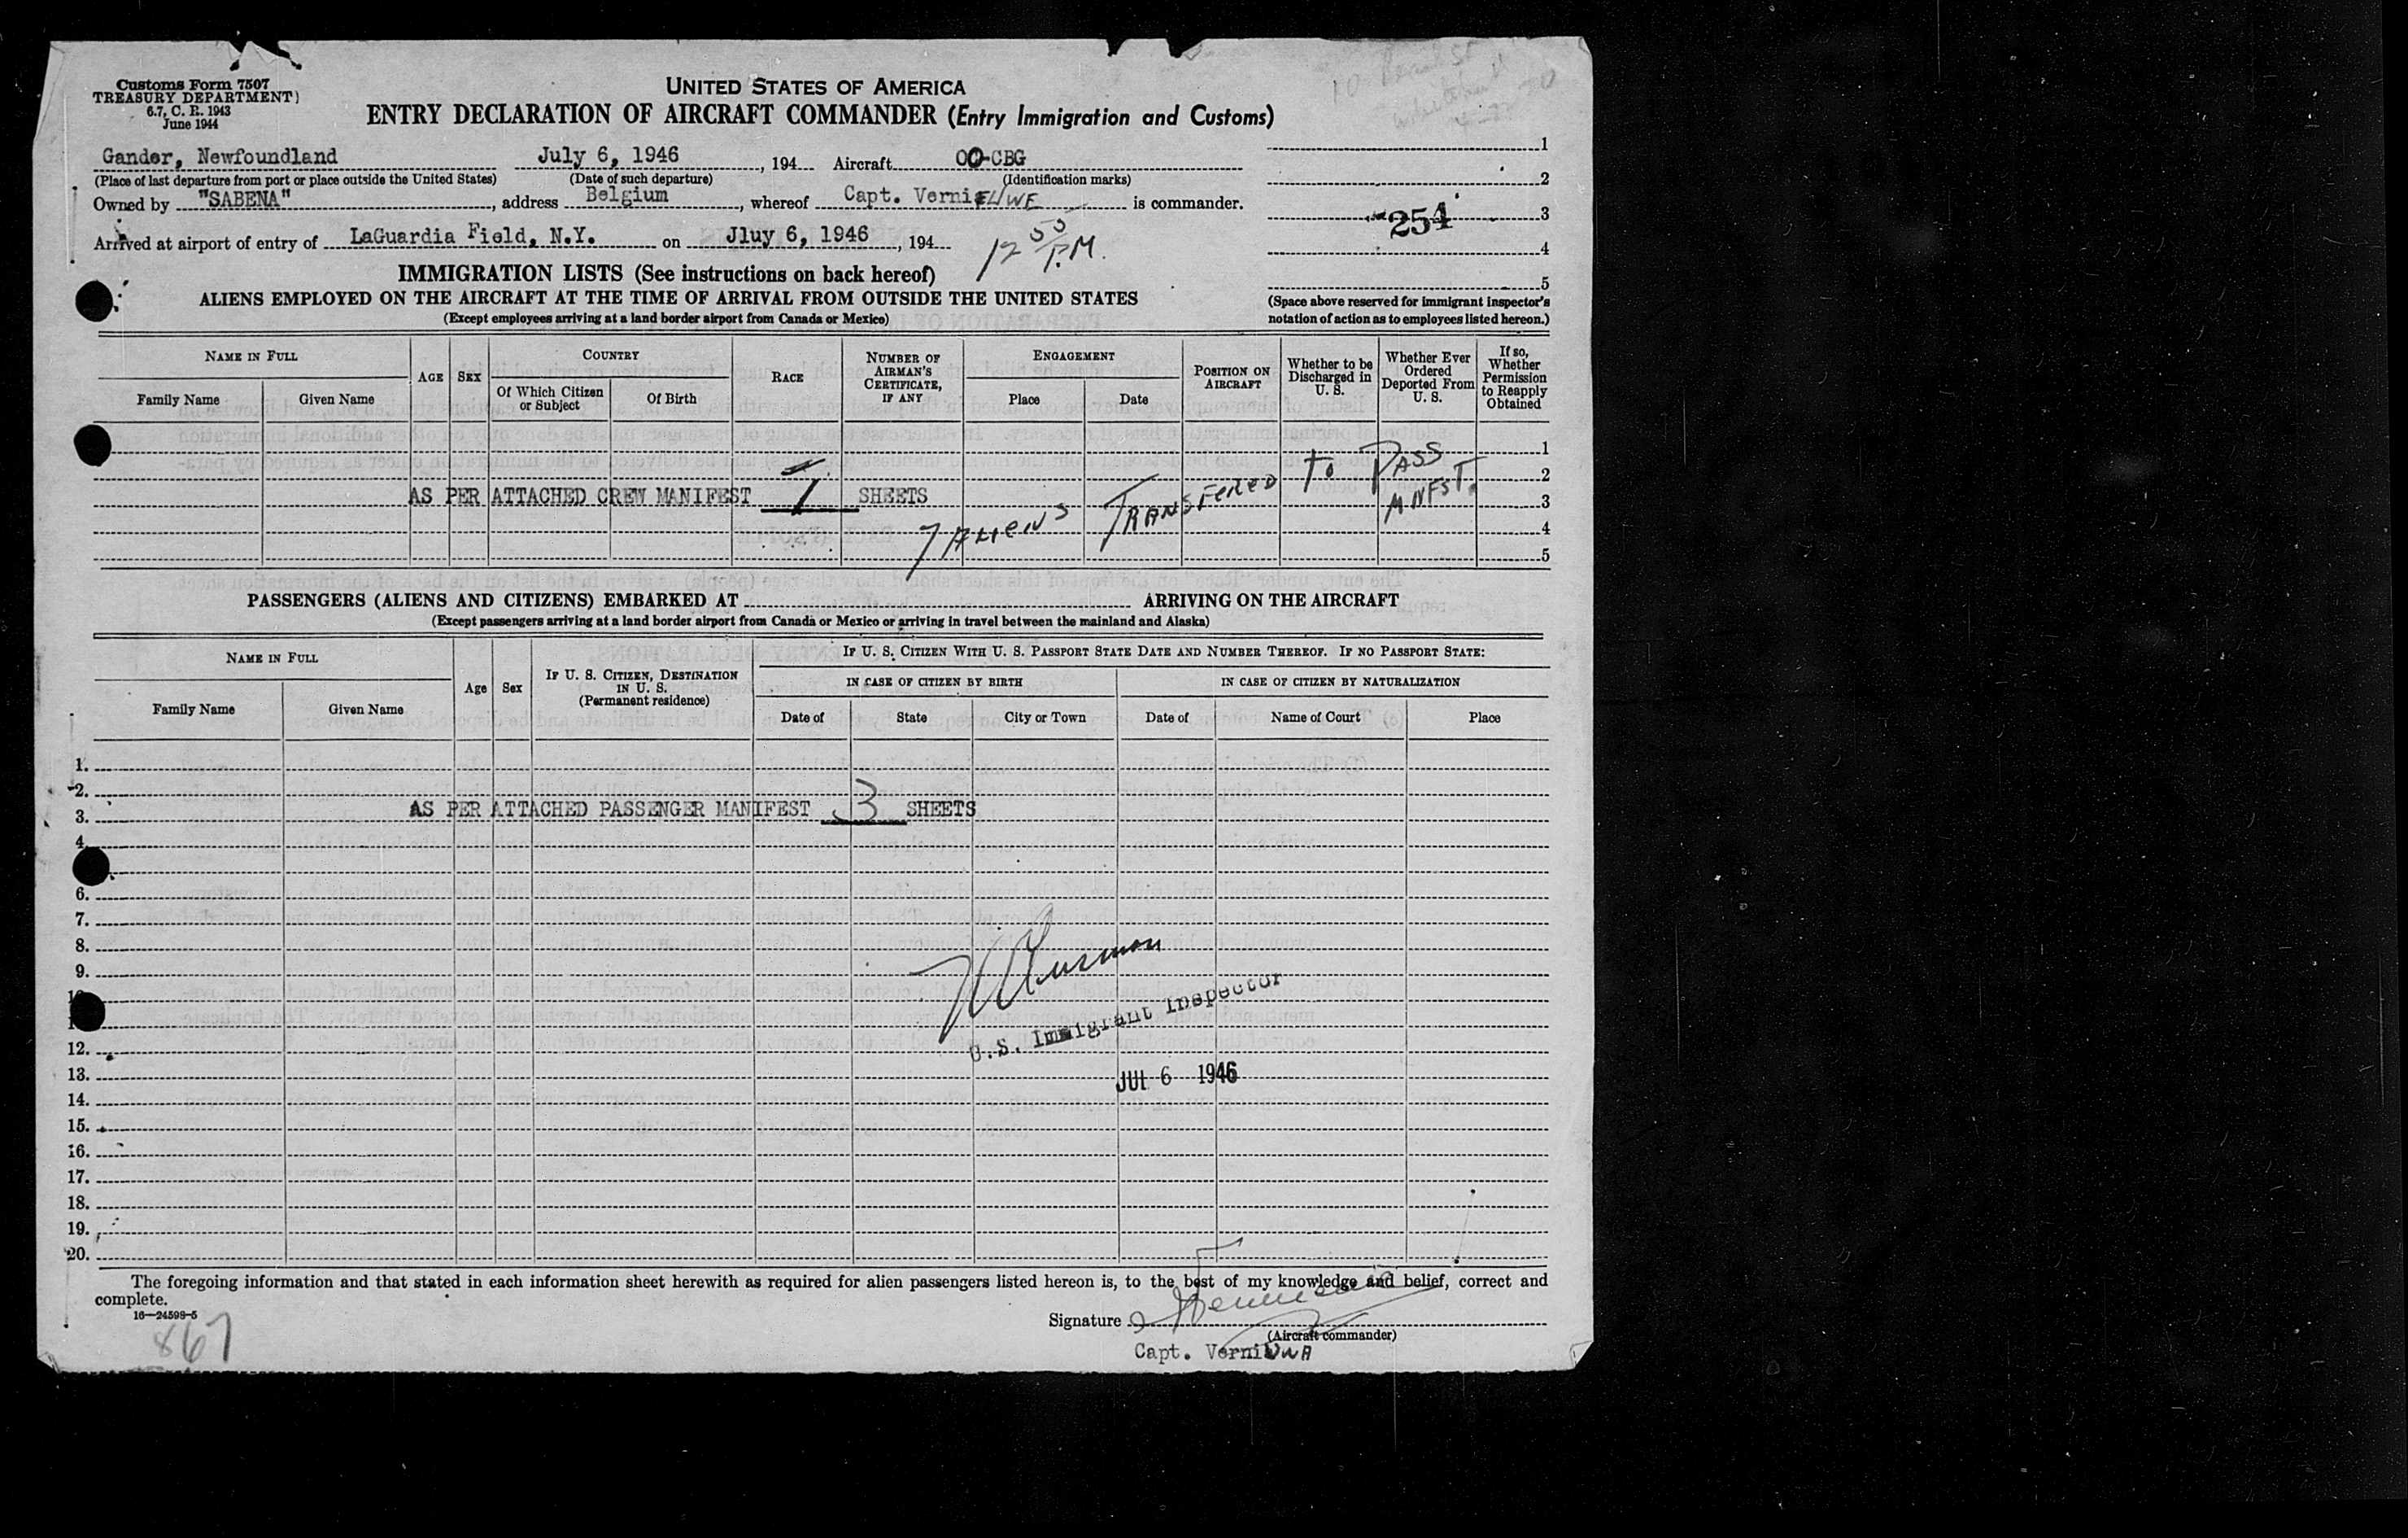 Customs Form 7507
TREASURY DEPARTMENT)
6.7, C. R. 1943
June 1944
UNITED STATES OF AMERICA
ENTRY DECLARATION OF AIRCRAFT COMMANDER (Entry Immigration and Customs)
Gander, Newfoundland July 6, 1946, 194 Aircraft OO-CBG
(Place of last departure from port or place outside the United States) (Date of such departure) (Identification marks)
Owned by "SABENA", address Belgium, whereof Capt. Vernieuwe is commander.
Arrived at airport of entry of LaGuardia Field, N.Y. on Jluy 6, 1946, 194
12 55 P.M.
1
2
254 3
4
5
(Space above reserved for immigrant inspector's
notation of action as to employees listed hereon.)
IMMIGRATION LISTS (See instructions on back hereof)
ALIENS EMPLOYED ON THE AIRCRAFT AT THE TIME OF ARRIVAL FROM OUTSIDE THE UNITED STATES
(Except employees arriving at a land border airport from Canada or Mexico)
NAME IN FULL AGE SEX COUNTRY RACE NUMBER OF AIRMAN'S CERTIFICATE, IF ANY ENGAGEMENT POSITION ON AIRCRAFT Whether to be Discharged in U. S. Whether Ever Ordered Deported From U. S. If so, Whether Permission to Reapply Obtained
Family Name Given Name Of Which Citizen or Subject Of Birth Place Date
1
2
AS PER ATTACHED CREW MANIFEST 1 SHEETS 3
7 ALIENS TRANSFERED TO PASS MNFST.
4
5
PASSENGERS (ALIENS AND CITIZENS) EMBARKED AT ARRIVING ON THE AIRCRAFT
(Except passengers arriving at a land border airport from Canada or Mexico or arriving in travel between the mainland and Alaska)
NAME IN FULL Age Sex IF U. S. CITIZEN, DESTINATION IN U. S. (Permanent residence) IF U. S. CITIZEN WITH U. S. PASSPORT STATE DATE AND NUMBER THEREOF. IF NO PASSPORT STATE:
IN CASE OF CITIZEN BY BIRTH IN CASE OF CITIZEN BY NATURALIZATION
Family Name Given Name Date of State City or Town Date of Name of Court Place
1.
2.
3. AS PER ATTACHED PASSENGER MANIFEST 3 SHEETS
4.
6.
7.
8.
9.
U.S. Immigrant Inspector
12.
13. JUL 6 1946
14.
15.
16.
17.
18.
19.
20.
The foregoing information and that stated in each information sheet herewith as required for alien passengers listed hereon is, to the best of my knowledge and belief, correct and
complete.
16—24598-5
Signature
(Aircraft commander)
Capt. Verniuwa
867